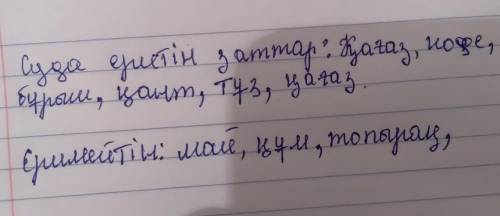 Суда еритін заттар: Қағаз, кофе,
бұрыш, қант, тұз, қағаз.
Ерімейтін: май, құм, топырақ,